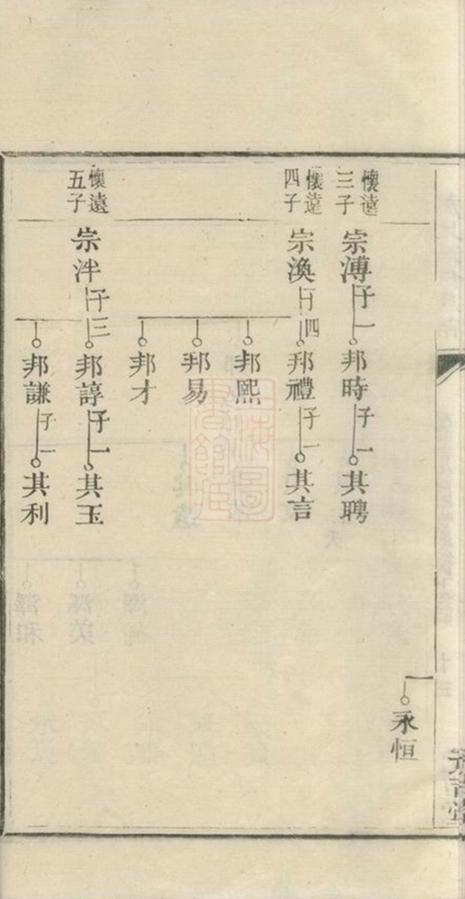 永恒
懷遠
三子
宗溥
子一
邦時
子一
其聘
懷遠
四子
宗渙
子四
邦禮
子一
其言
邦熙
邦易
邦才
懷遠
五子
宗泮
子三
邦諄
子一
其玉
邦謙
子一
其利